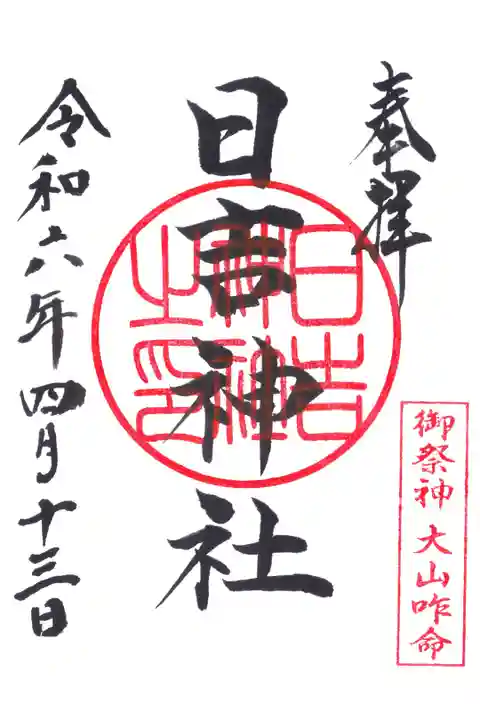 奉拝
日吉神社
日吉神社之印
御祭神 大山咋命
令和六年四月十三日